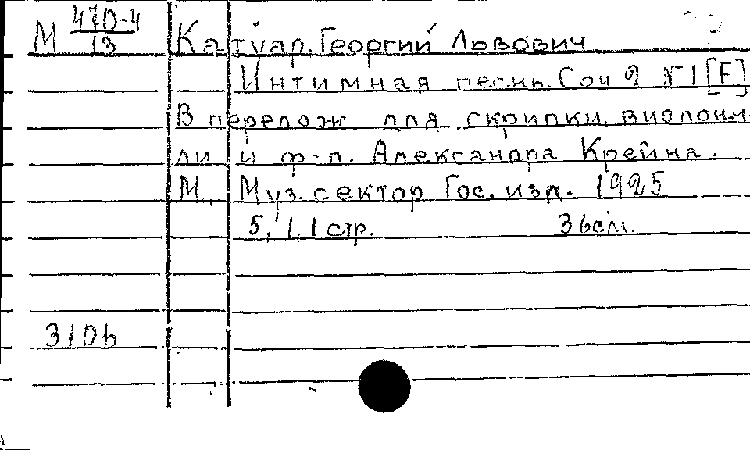 М 470-4/13 Катуар, Георгий Львович
Интимная песнь. Соч 2 №1 [F]
В перелож для скрипки, виолонче
ли и ф-п. Александра Крейна.
М, Муз. сектор Гос. изд. 1925
5, 1, 1 стр. 36см.